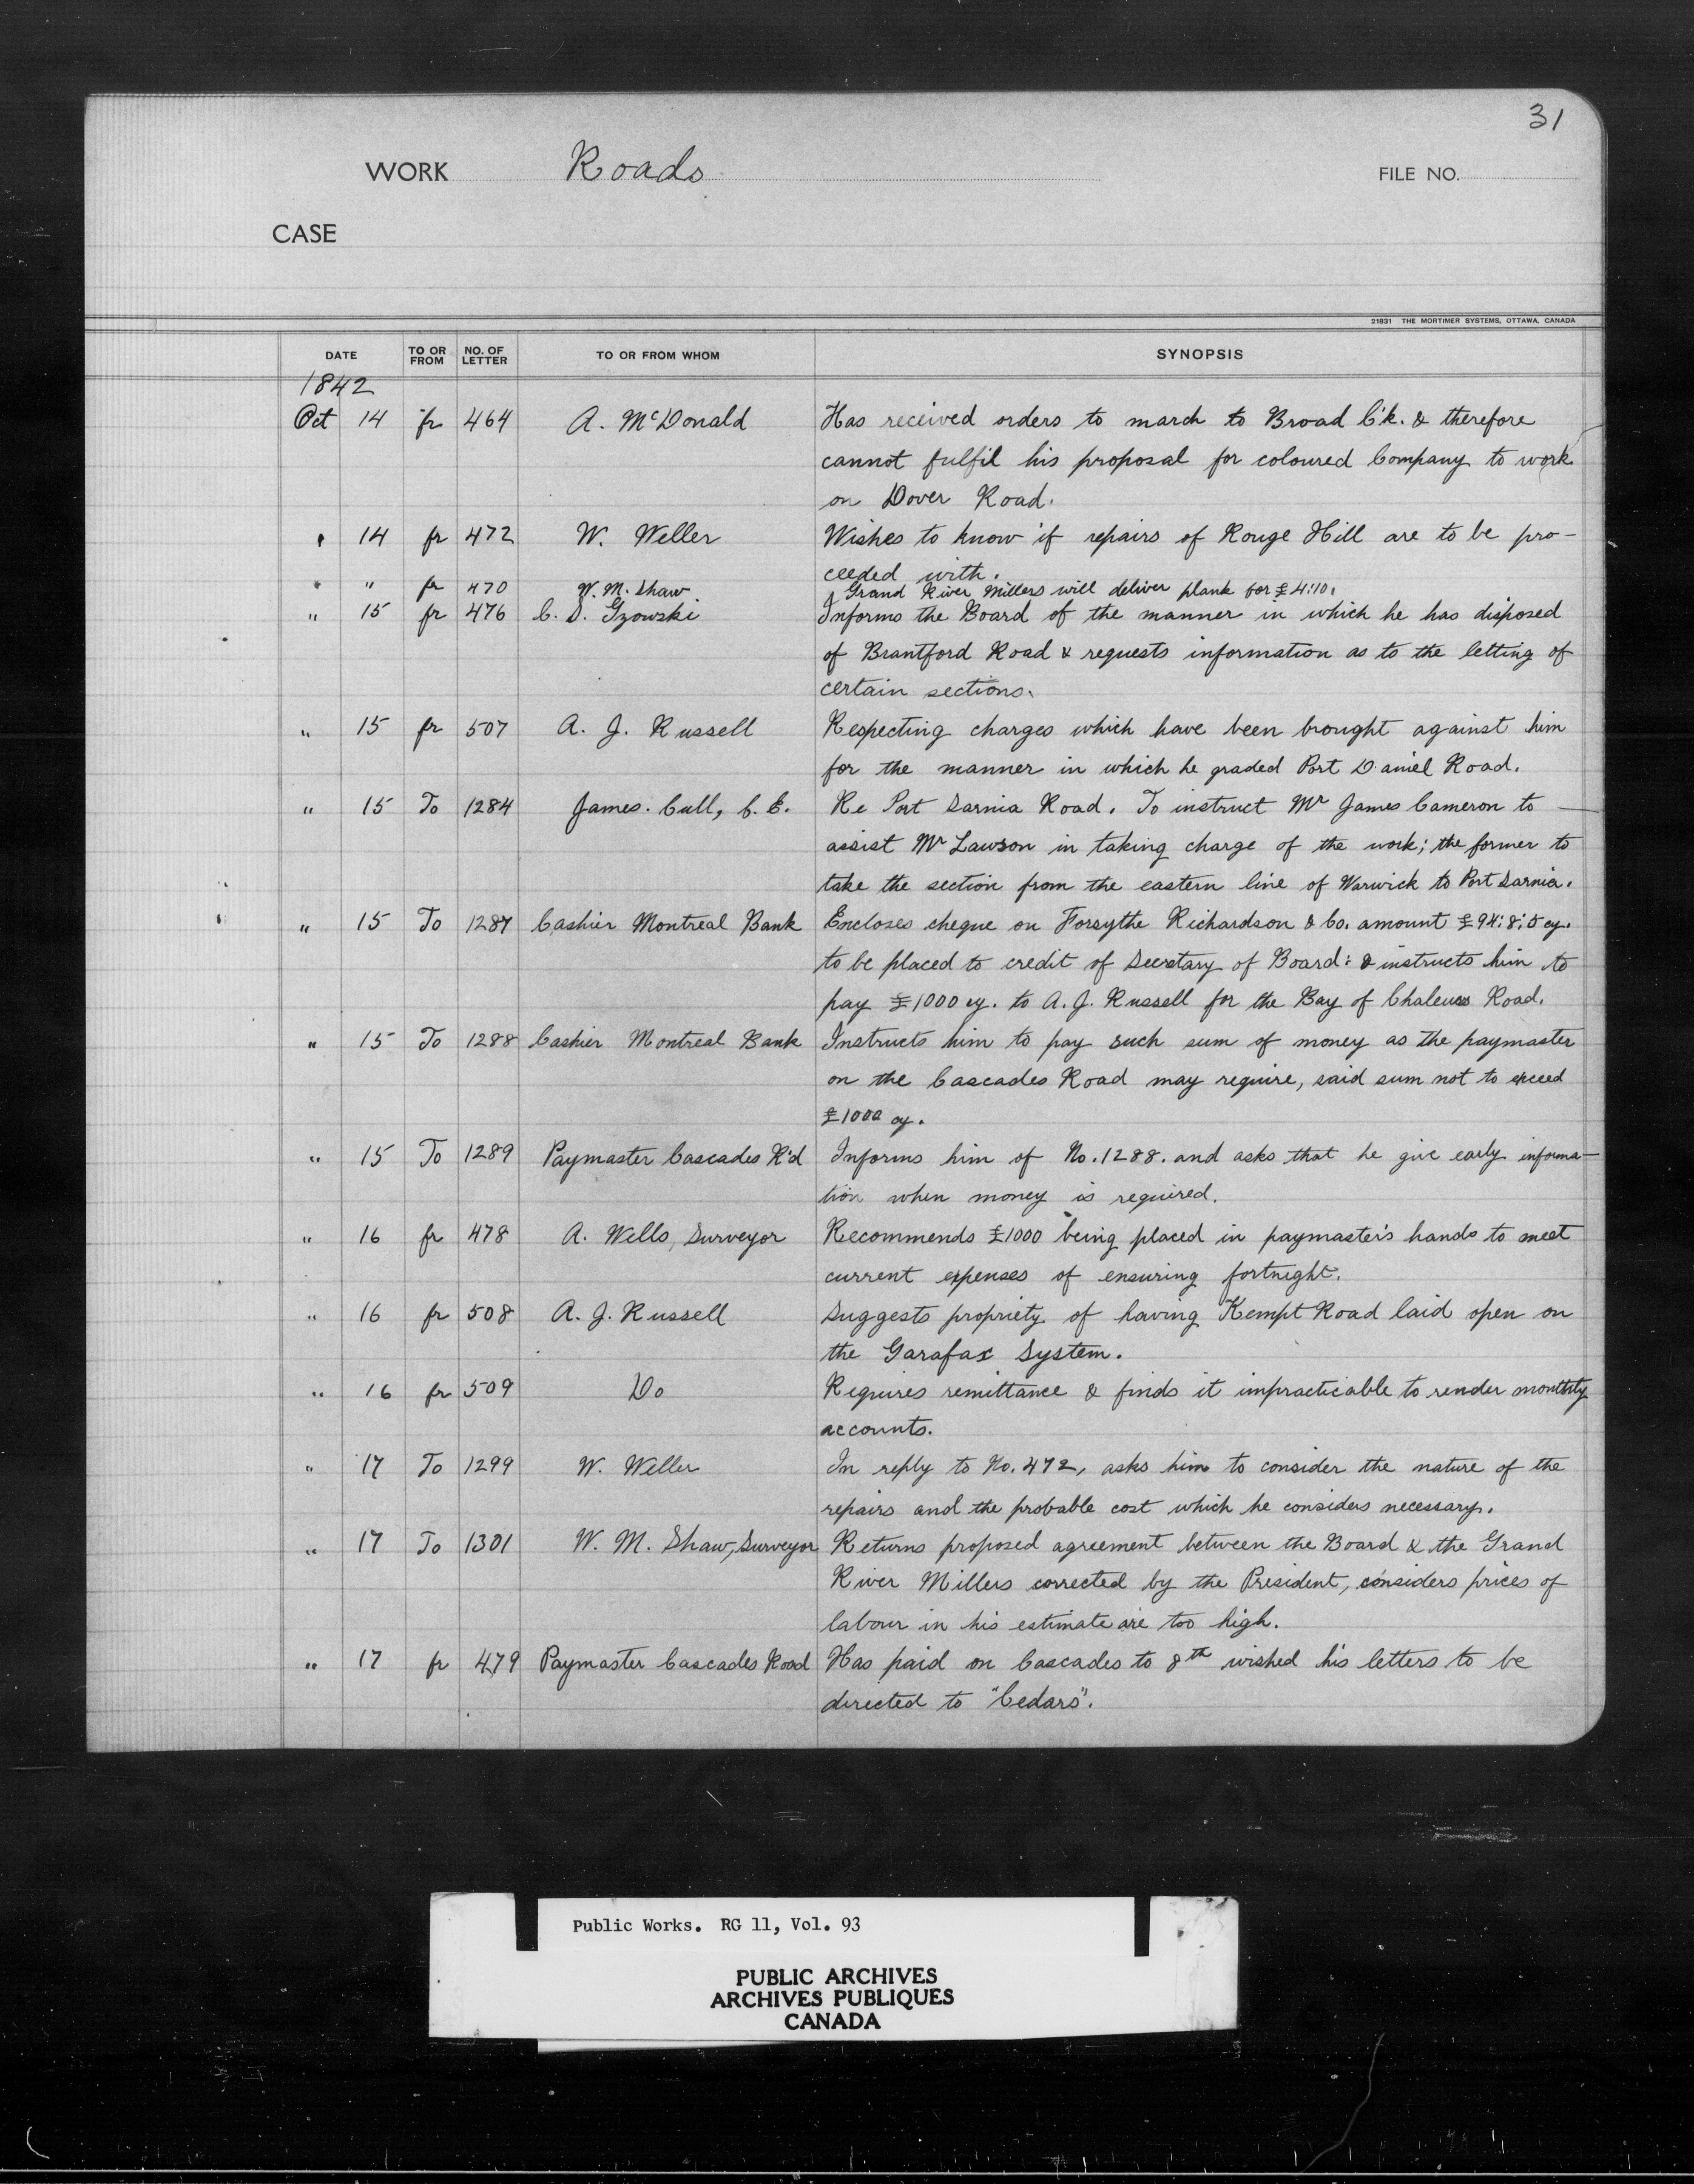 31
WORK Roads FILE NO.
CASE
21831 THE MORTIMER SYSTEMS, OTTAWA, CANADA
DATE TO OR FROM NO. OF LETTER TO OR FROM WHOM SYNOPSIS
1842
Oct 14 fr 464 A. McDonald Has received orders to march to Broad C'k. & therefore
cannot fulfil his proposal for coloured Company to work
on Dover Road.
" 14 fr 472 W. Weller Wishes to know if repairs of Rouge Hill are to be pro-
ceeded with.
" " fr 470 W. M. Shaw Grand River Millers will deliver plank for £4:10.
" 15 fr 476 C. S. Gzowski Informs the Board of the manner in which he has disposed
of Brantford Road & requests information as to the letting of
certain sections.
" 15 fr 507 A. J. Russell Respecting charges which have been brought against him
for the manner in which he graded Port Daniel Road.
" 15 To 1284 James. Cull, C. E. Re Port Sarnia Road. To instruct Mr James Cameron to
assist Mr Lawson in taking charge of the work; the former to
take the section from the eastern line of Warwick to Port Sarnia.
" 15 To 1287 Cashier Montreal Bank Encloses cheque on Forsythe Richardson & Co. amount £94:8:5 cy.
to be placed to credit of Secretary of Board: & instructs him to
pay £1000 cy. to A. J. Russell for the Bay of Chaleurs Road.
" 15 To 1288 Cashier Montreal Bank Instructs him to pay such sum of money as the paymaster
on the Cascades Road may require, said sum not to exceed
£1000 cy.
" 15 To 1289 Paymaster Cascades R'd Informs him of No. 1288. and asks that he give early informa-
tion when money is required.
" 16 fr 478 A. Wells, Surveyor Recommends £1000 being placed in paymaster's hands to meet
current expenses of ensuring fortnight.
" 16 fr 508 A. J. Russell Suggests propriety of having Kempt Road laid open on
the Garafax System.
" 16 fr 509 Do Requires remittance & finds it impracticable to render monthly
accounts.
" 17 To 1299 W. Weller In reply to No. 472, asks him to consider the nature of the
repairs and the probable cost which he considers necessary.
" 17 To 1301 W. M. Shaw, Surveyor Returns proposed agreement between the Board & the Grand
River Millers corrected by the President, considers prices of
labour in his estimate are too high.
" 17 fr 479 Paymaster Cascades Road Has paid on Cascades to 8th wished his letters to be
directed to "Cedars".
Public Works. RG 11, Vol. 93
PUBLIC ARCHIVES
ARCHIVES PUBLIQUES
CANADA